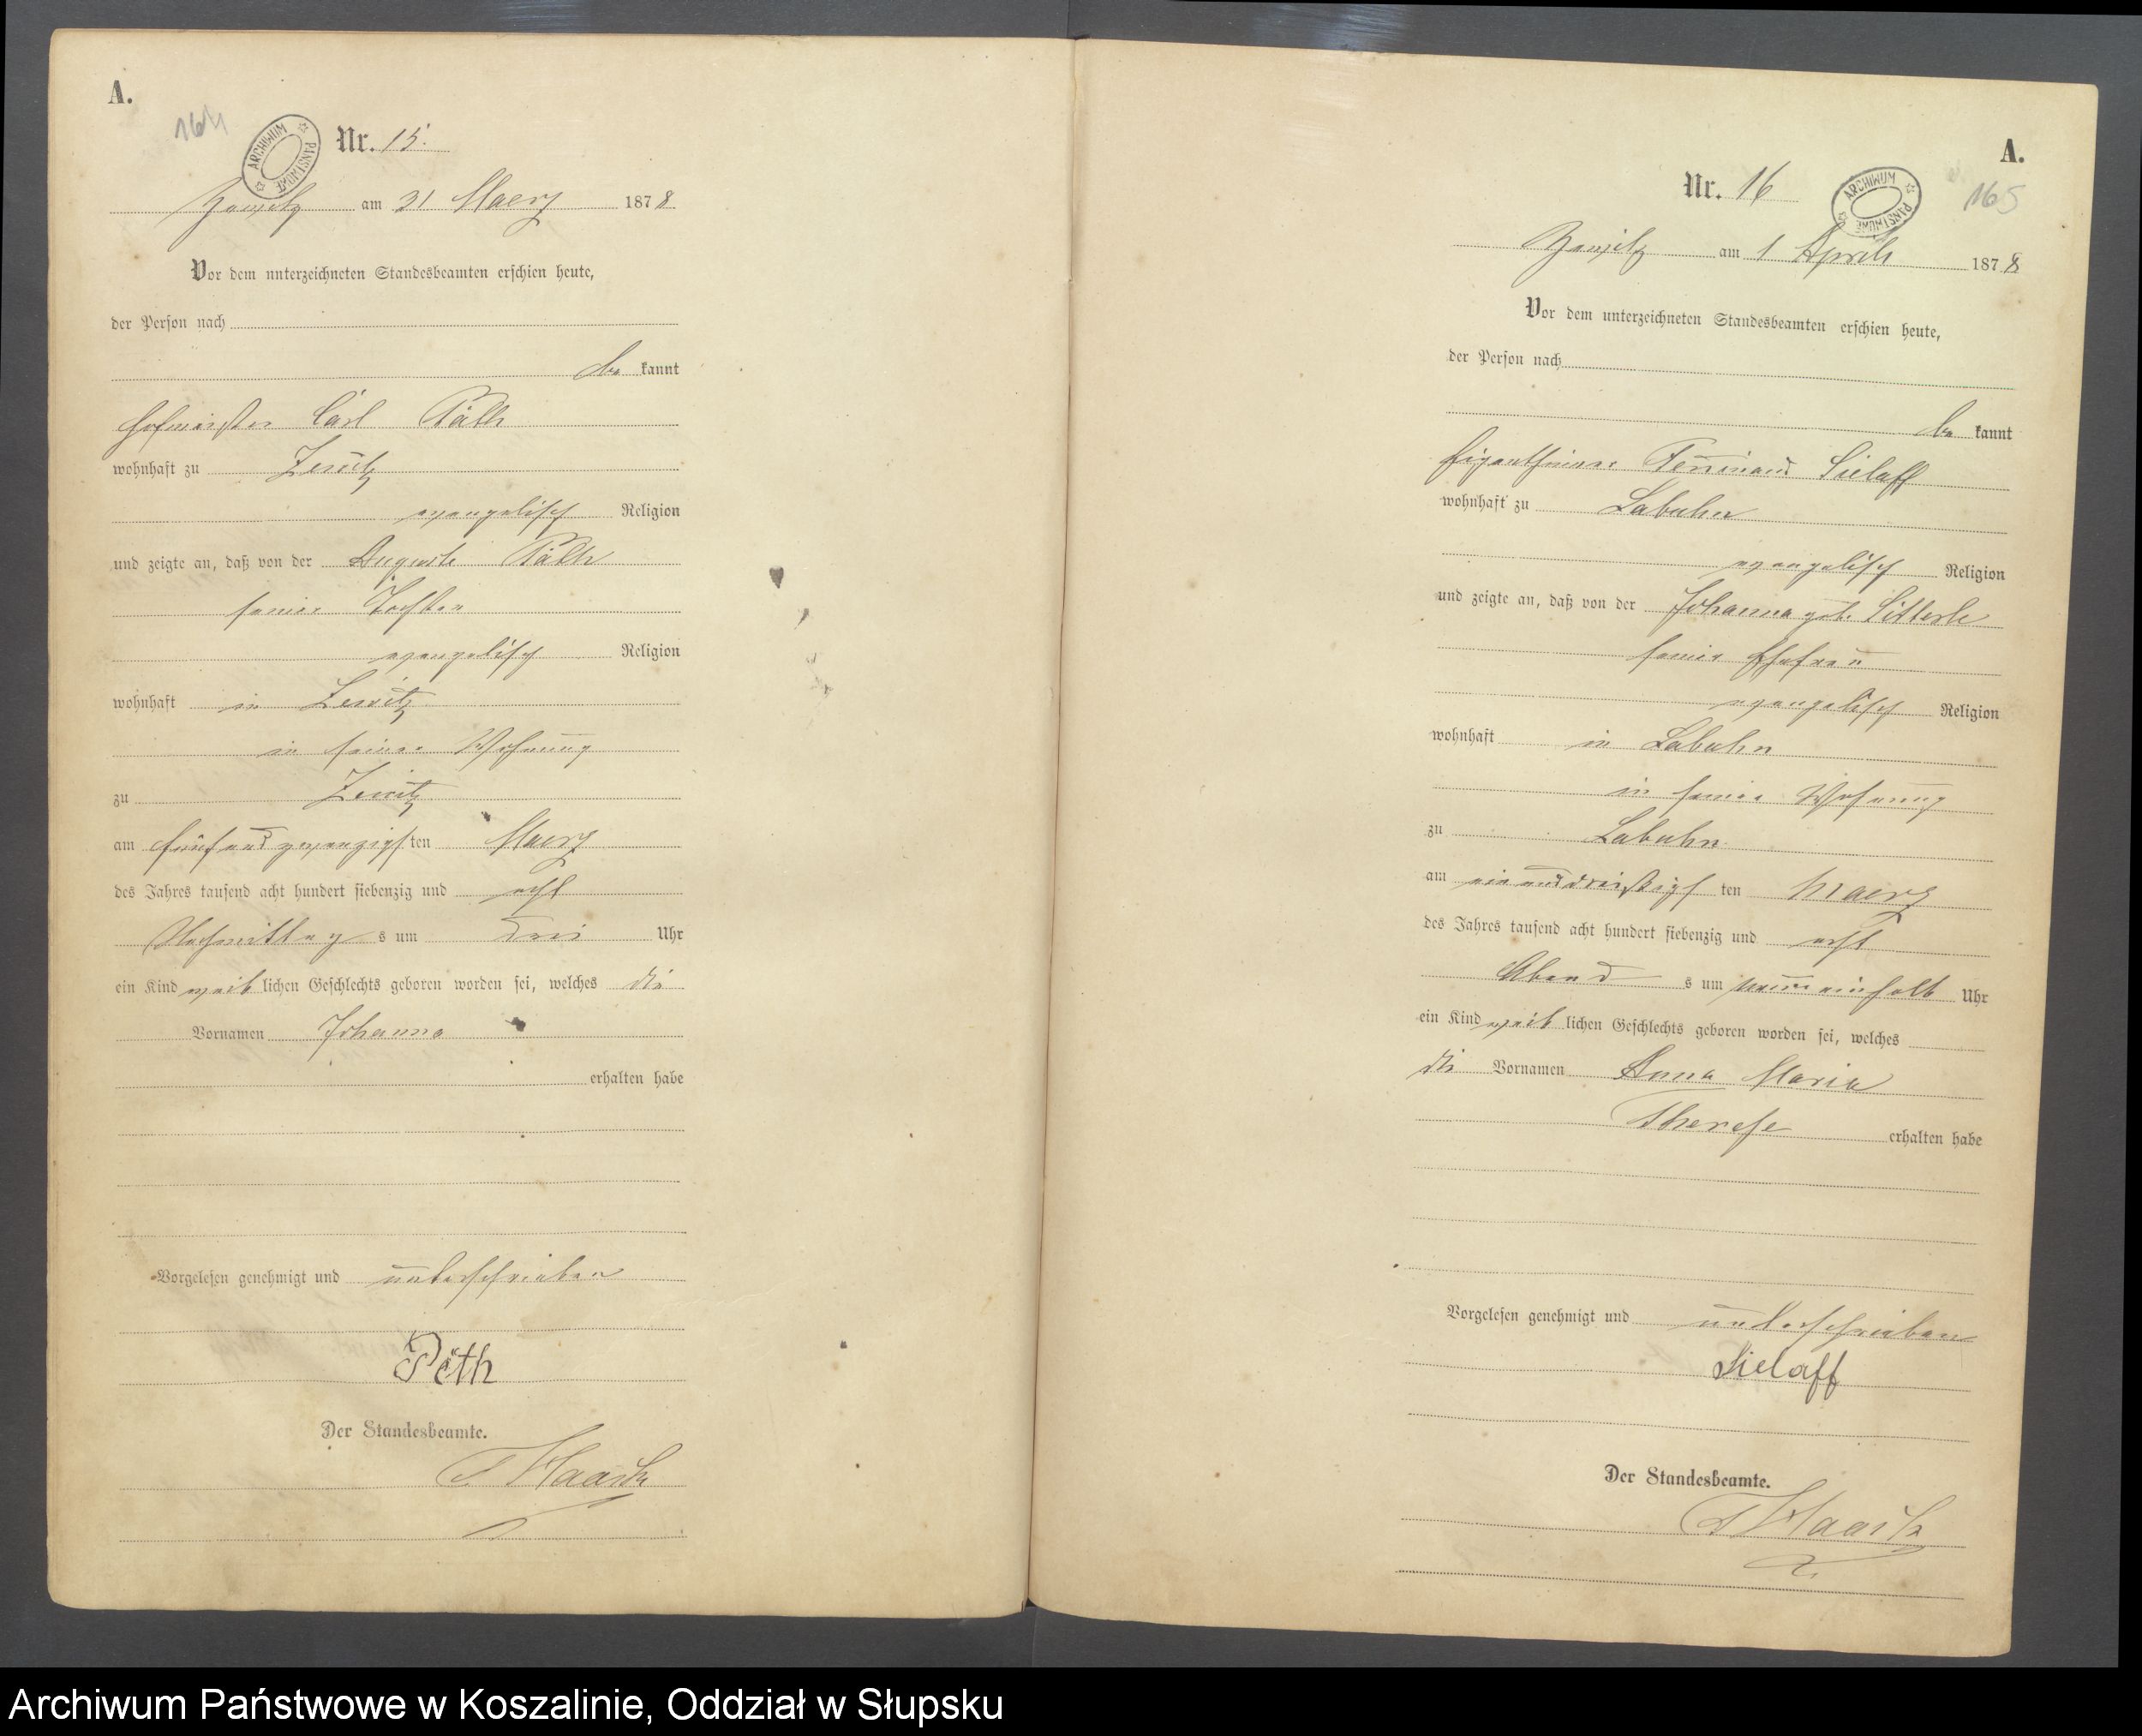 A.
164
ARCHIWUM PAŃSTWOWE
Nr. 15.
am 31 Maerz 1878
Vor dem unterzeichneten Standesbeamten erschien heute,
der Person nach
be kannt
Hofmeister Carl Päth
wohnhaft zu Zewitz
evangelisch Religion
und zeigte an, daß von der Auguste Päth
seiner Tochter
evangelisch Religion
wohnhaft in Zewitz
in seiner Wohnung
zu Zewitz
am fünfundzwanzigsten Maerz
des Jahres tausend acht hundert siebenzig und acht
Nachmittags um drei Uhr
ein Kind weiblichen Geschlechts geboren worden sei, welches die
Vornamen Johanna
erhalten habe
Vorgelesen genehmigt und unterschrieben
Päth
Der Standesbeamte.
A.
Nr. 16
ARCHIWUM PAŃSTWOWE
165
am 1 April 1878
Vor dem unterzeichneten Standesbeamten erschien heute,
der Person nach
be kannt
Eigenthümer Ferdinand Sielaff
wohnhaft zu Labuhn
evangelisch Religion
und zeigte an, daß von der Johanna geb.
seiner Ehefrau
evangelisch Religion
wohnhaft in Labuhn
in seiner Wohnung
zu Labuhn
am einunddreißigsten Maerz
des Jahres tausend acht hundert siebenzig und acht
Abends um neuneinhalb Uhr
ein Kind weiblichen Geschlechts geboren worden sei, welches
die Vornamen Anna Maria
Therese erhalten habe
Vorgelesen genehmigt und unterschrieben
Sielaff
Der Standesbeamte.
Archiwum Państwowe w Koszalinie, Oddział w Słupsku